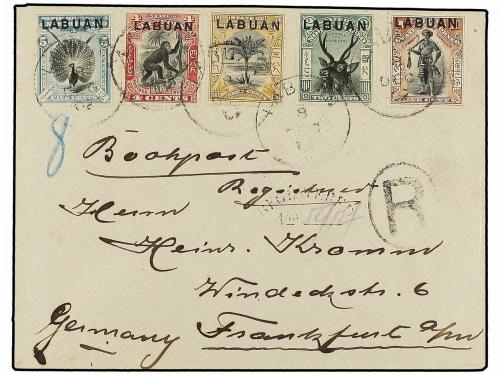 LABUAN LABUAN LABUAN LABUAN LABUAN
4 CENTS TWO CENTS
8
Bookpost
Registered
REGISTERED
R
Herrn
Heinr. Kromm
Windeckstr. 6
Germany Frankfurt a/m